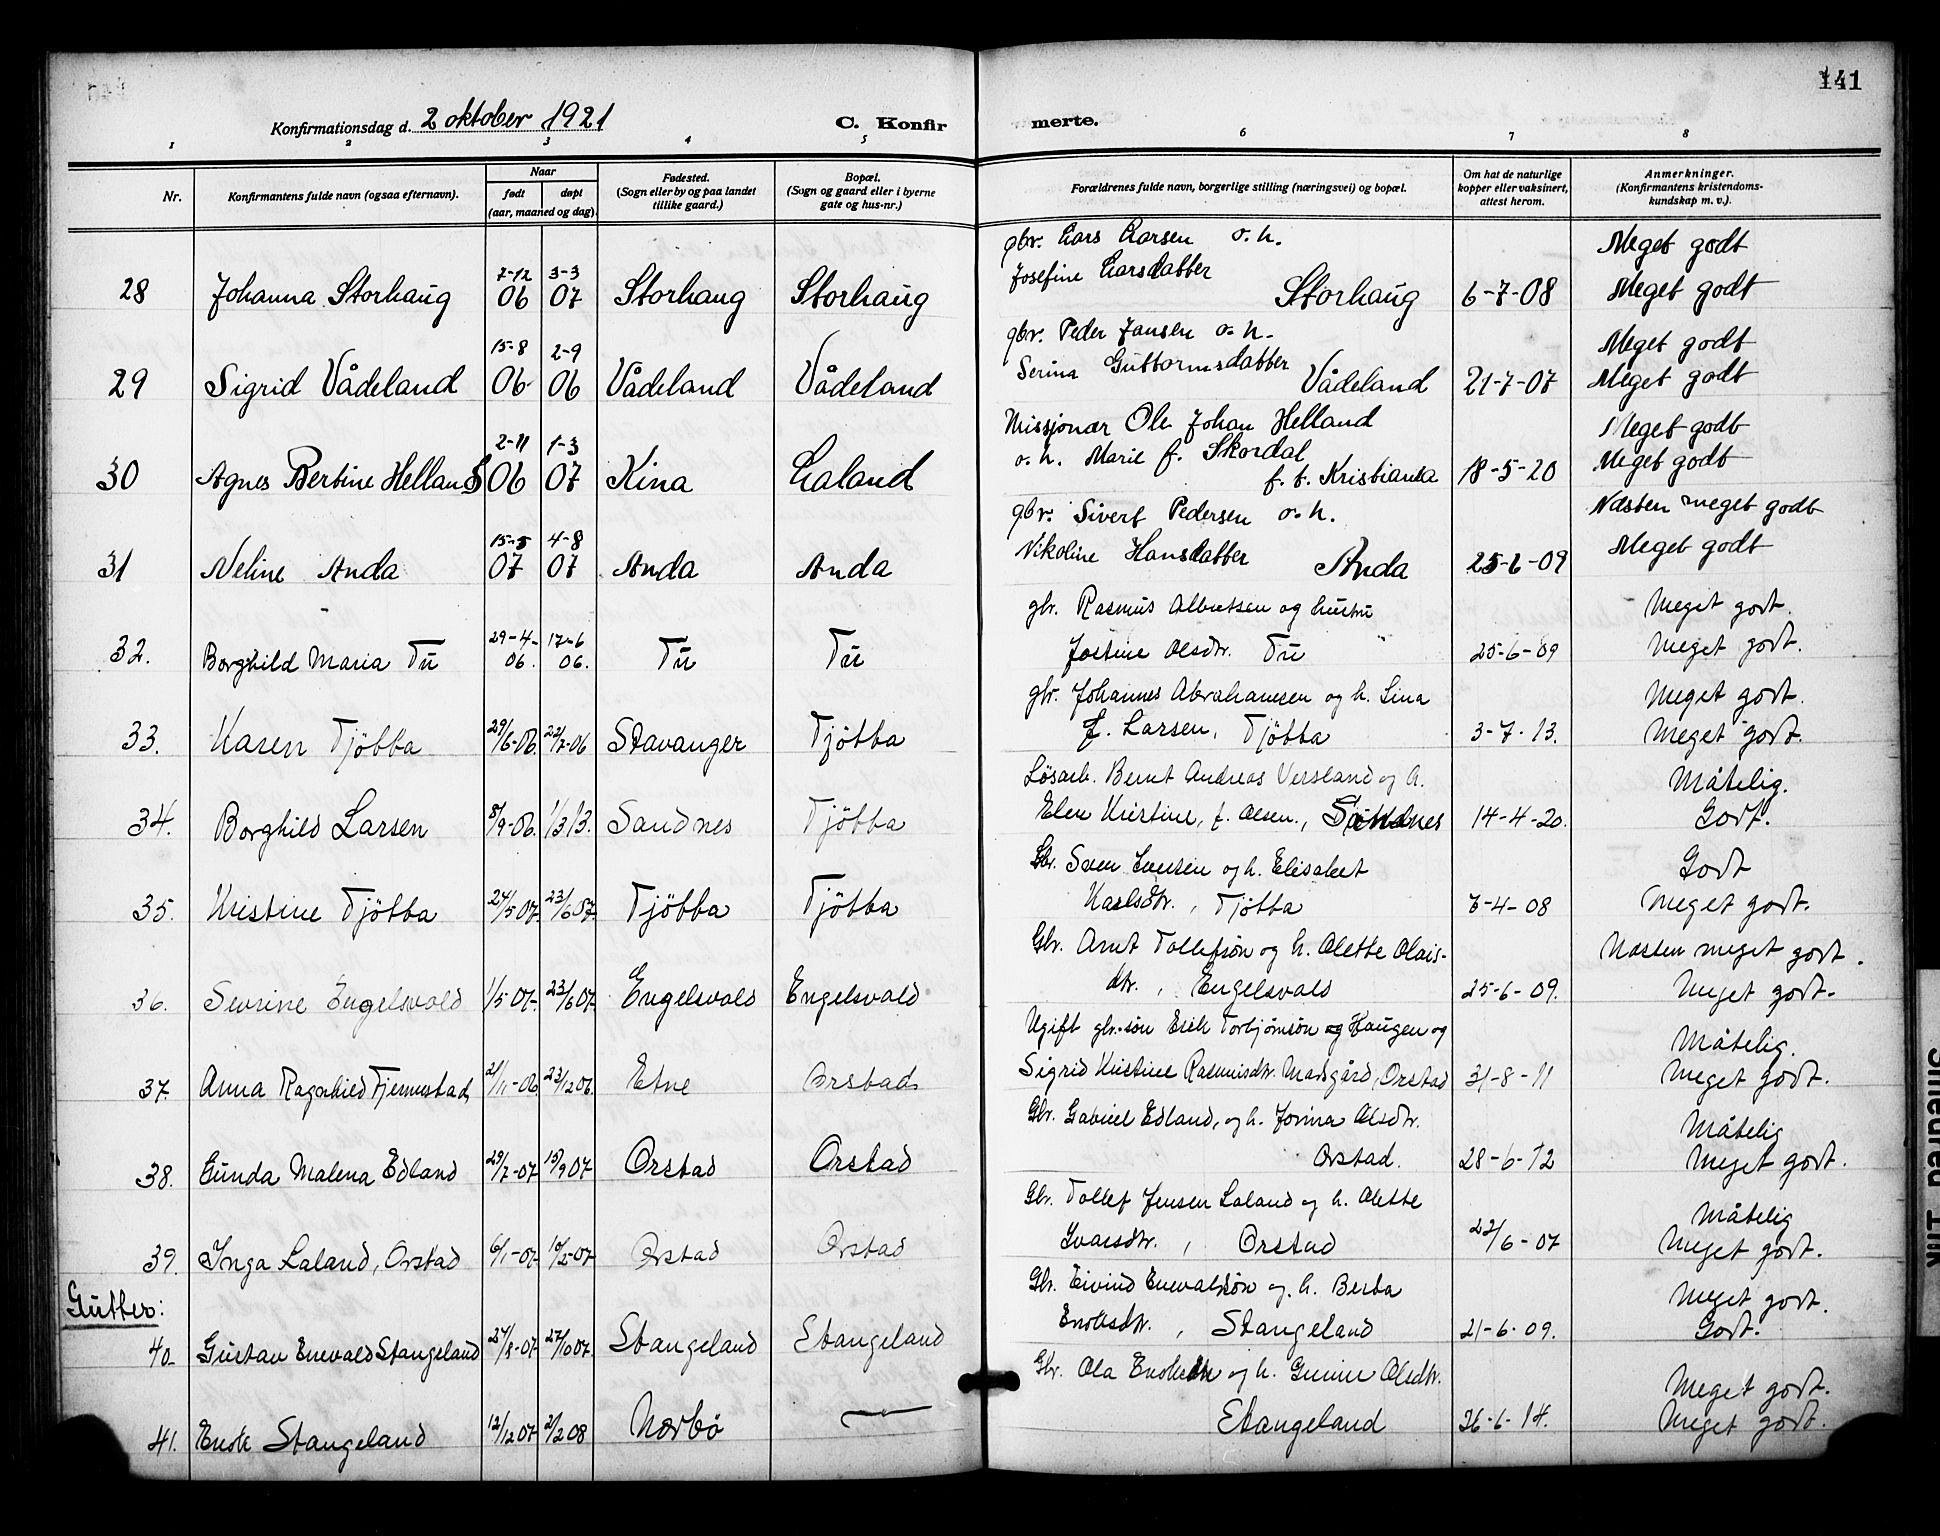 141
Konfirmationsdag d. 2 oktober 1921 C. Konfir merte.
1 2 3 4 5 6 7 8
Nr. Konfirmantens fulde navn (ogsaa efternavn). Naar født døpt (aar, maaned og dag). Fødested. (Sogn eller by og paa landet tillike gaard.) Bopæl. (Sogn og gaard eller i byerne gate og hus-nr.) Forældrenes fulde navn, borgerlige stilling (næringsvei) og bopæl. Om hat de naturlige kopper eller vaksinert, attest herom. Anmerkninger. (Konfirmantens kristendoms- kundskap m. v.).
gbr. Lars Larsen o. h. Meget godt
7-12 3-3 Josefine Larsdatter
28 Johanna Storhaug 06 07 Storhaug Storhaug Storhaug 6-7-08 Meget godt
gbr. Peder Jansen o. h. Meget godt
15-8 2-9 Serina Guttormsdatter
29 Sigrid Vådeland 06 06 Vådeland Vådeland Vådeland 21-7-07 Meget godt
Missjonær Ole Johan Helland Meget godt
2-11 1-3 o. h. Marie f. Skordal
30 Agnes Bertine Helland 06 07 Kina Laland f. t. Kristiania 18-5-20 Meget godt
gbr. Sivert Pedersen o. h. Næsten meget godt
15-5 4-8 Nikoline Hansdatter
31 Neline Anda 07 07 Anda Anda Anda 25-6-09 Meget godt
gbr. Rasmus Albretsen og hustru Meget godt.
29-4- 17-6
32. Borghild Maria Tu 06. 06. Tu Tu Jostine Olsdtr. Tu 25-6-09 Meget godt.
gbr. Johannes Abrahamsen og h. Lina Meget godt.
33. Karen Tjøtta 29/6-06. 22/7-06 Stavanger Tjøtta f. Larsen, Tjøtta 3-7-13. Meget godt.
Løsarb. Bernt Andreas Versland og h. Måtelig.
34. Borghild Larsen 8/9-06. 1/3 13. Sandnes Tjøtta Elen Kristine, f. Olsen., Sandnes 14-4-20. Godt.
Gbr. Sven Iversen og h. Elisabet Godt
35. Kristine Tjøtta 24/5 07. 23/6 07. Tjøtta Tjøtta Karlsdtr., Tjøtta 7-4-08 Meget godt.
Gbr. Arnt Tollefsøn og h. Olette Olais- Næsten meget godt.
36. Severine Engelsvold 1/5 07. 23/6 07. Engelsvold Engelsvold dtr., Engelsvold 25-6-09. Meget godt.
Ugift gbr.søn Erik Torbjørnsøn og Haugen og Måtelig.
37. Anna Ragnhild Tjemestad 21/11-06 23/12 06. Etne Orstad Sigrid Kristine Rasmusdtr. Marsgård, Orstad 31-8-11 Meget godt.
Gbr. Gabriel Edland, og h. Jorina Olsdtr. Måtelig
38. Gunda Malena Edland 29/7-07 15/9 07 Orstad Orstad Orstad. 28-6-12 Meget godt.
Gbr. Tollef Jensen Laland og h. Olette Måtelig
39. Inga Laland, Orstad 6/1-07. 10/2-07 Orstad Orstad Ivarsdtr., Orstad 22/6-07 Meget godt.
Gutter: Gbr. Eivind Enevaldsøn og h. Berta Meget godt.
40. Gustav Enevald Stangeland 24/8-07 27/10 07. Stangeland Stangeland Enoksdtr., Stangeland 21-6-09. Godt.
Gbr. Ola Enoksen og h. Gunne Olsdtr. Meget godt.
41. Enok Stangeland 12/12 07 2/2 08 Nærbø — Stangeland 26-6-14. Meget godt.
Smedred Tink